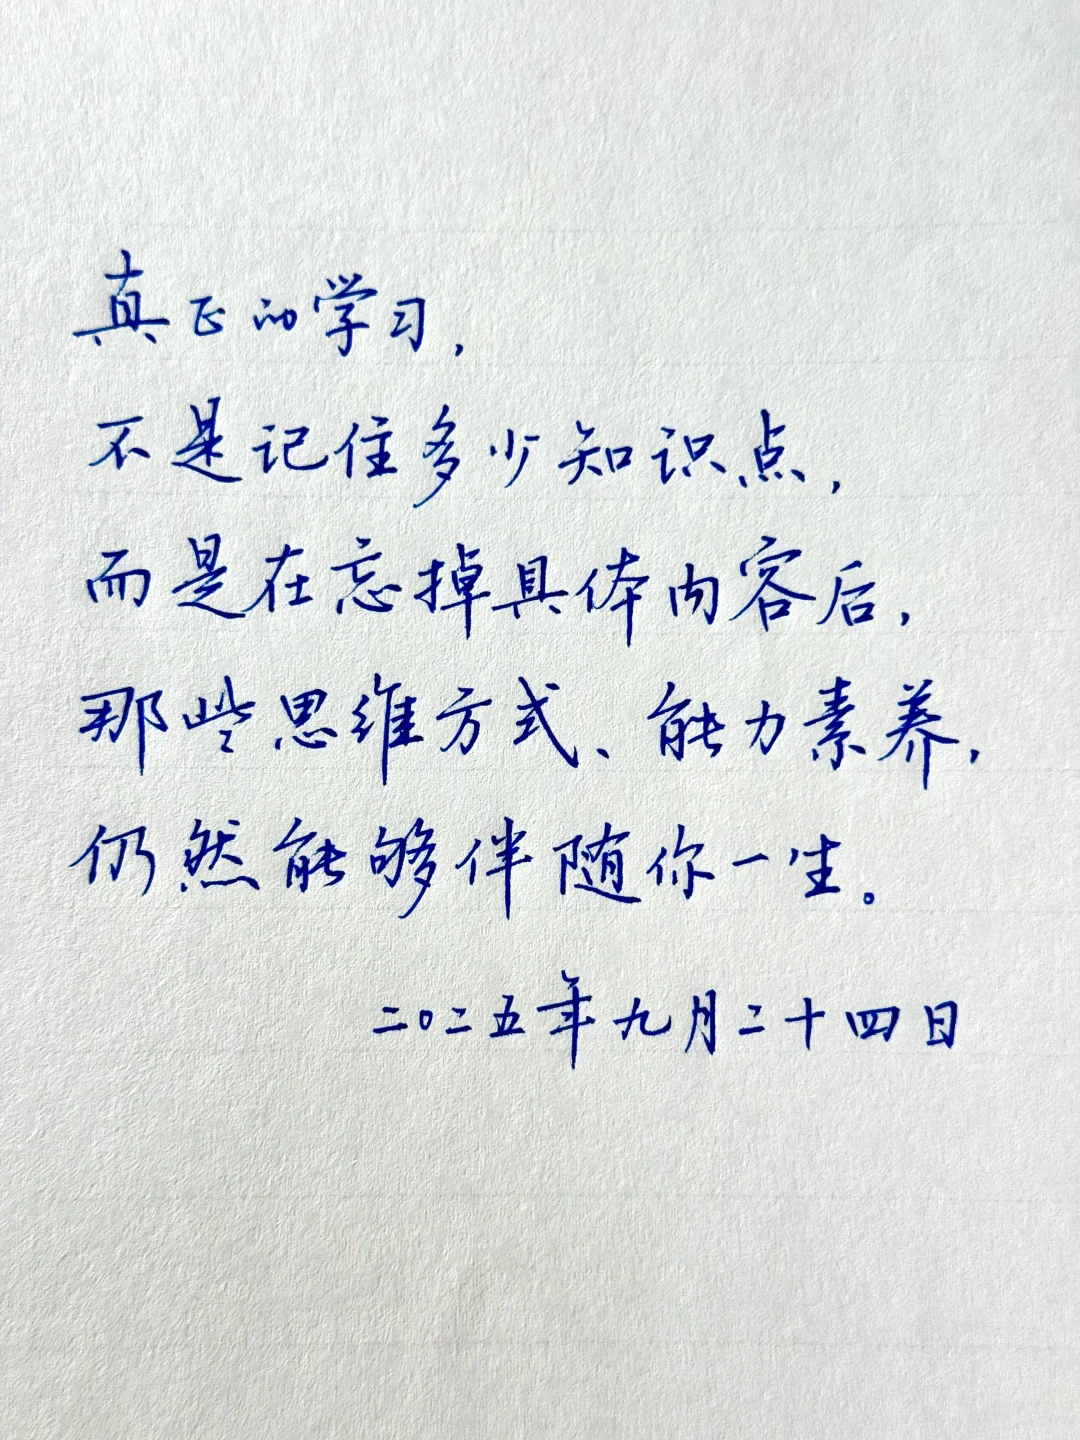 真正的学习，
不是记住多少知识点，
而是在忘掉具体内容后，
那些思维方式、能力素养，
仍然能够伴随你一生。
二〇二五年九月二十四日